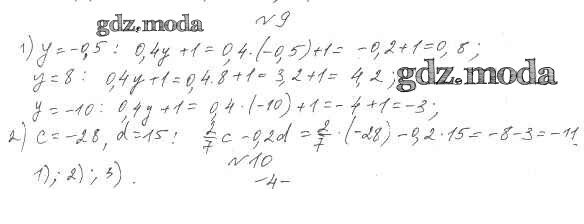 gdz.moda
№ 9
1) y = -0,5 : 0,4y + 1 = 0,4 · (-0,5) + 1 = -0,2 + 1 = 0,8 ;
y = 8 : 0,4y + 1 = 0,4 · 8 + 1 = 3,2 + 1 = 4,2 ; gdz.moda
y = -10 : 0,4y + 1 = 0,4 · (-10) + 1 = -4 + 1 = -3 ;
2) c = -28, d = 15 : 2/7 c - 0,2d = 2/7 · (-28) - 0,2 · 15 = -8 - 3 = -11
№ 10
1) ; 2) ; 3) .
-4-